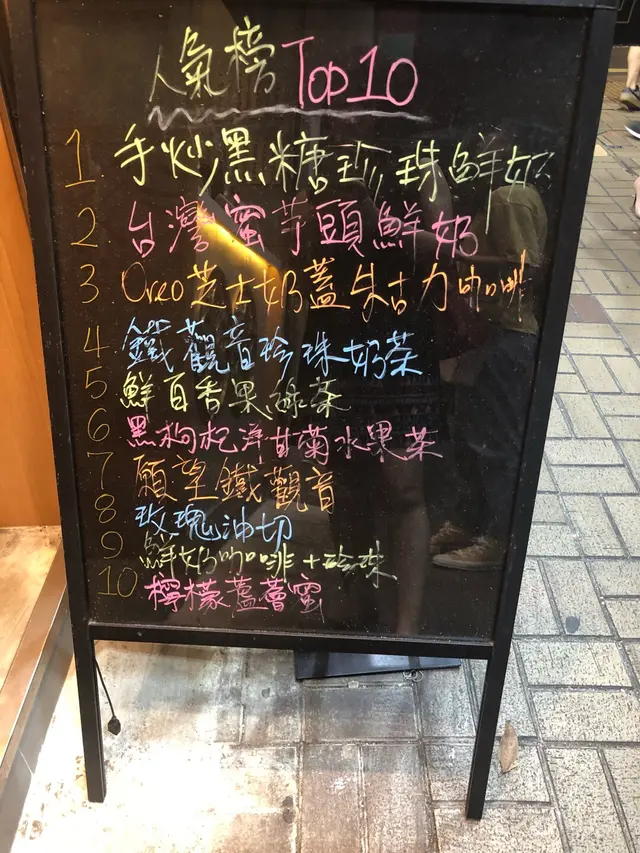 人氣榜 Top 10
1 手炒黑糖珍珠鮮奶
2 台灣蜜芋頭鮮奶
3 Oreo芝士奶蓋朱古力咖啡
4 鐵觀音珍珠奶茶
5 鮮百香果綠茶
6 黑枸杞洋甘菊水果茶
7 願望鐵觀音
8 玫瑰油切
9 鮮奶咖啡+珍珠
10 檸檬蘆薈蜜